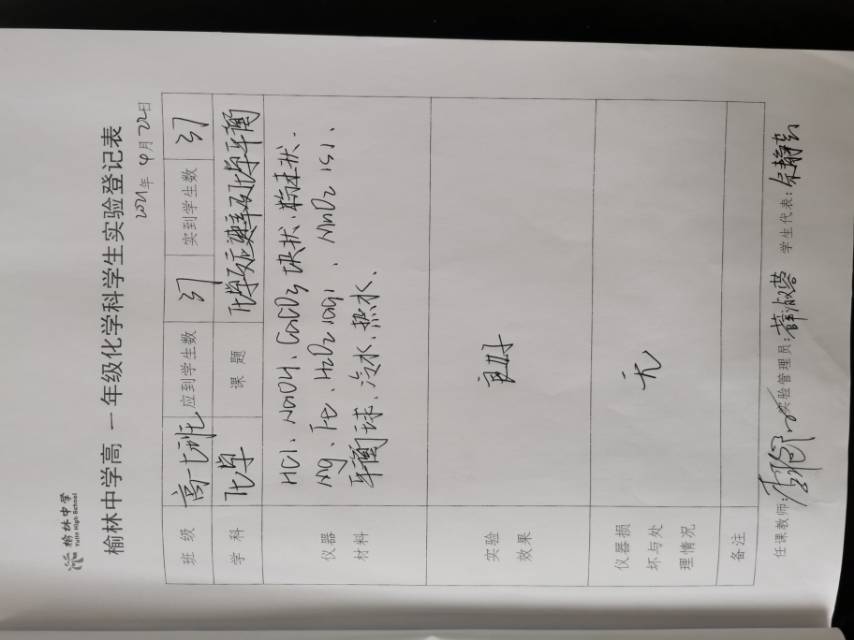 榆林中学
Yulin High School
榆林中学高一年级化学科学生实验登记表
2021年 4月22日
班级 高一七班 应到学生数 37 实到学生数 37
学科 化学 课题 化学反应速率及化学平衡
仪器材料 HCl、NaOH、CaCO3 块状、粉末状、
Mg、Fe、H2O2 (aq)、MnO2 (s)、
平衡球、冷水、热水、
实验效果 良好
仪器损坏与处理情况 无
备注
任课教师: 实验管理员: 薛淑蓉 学生代表: